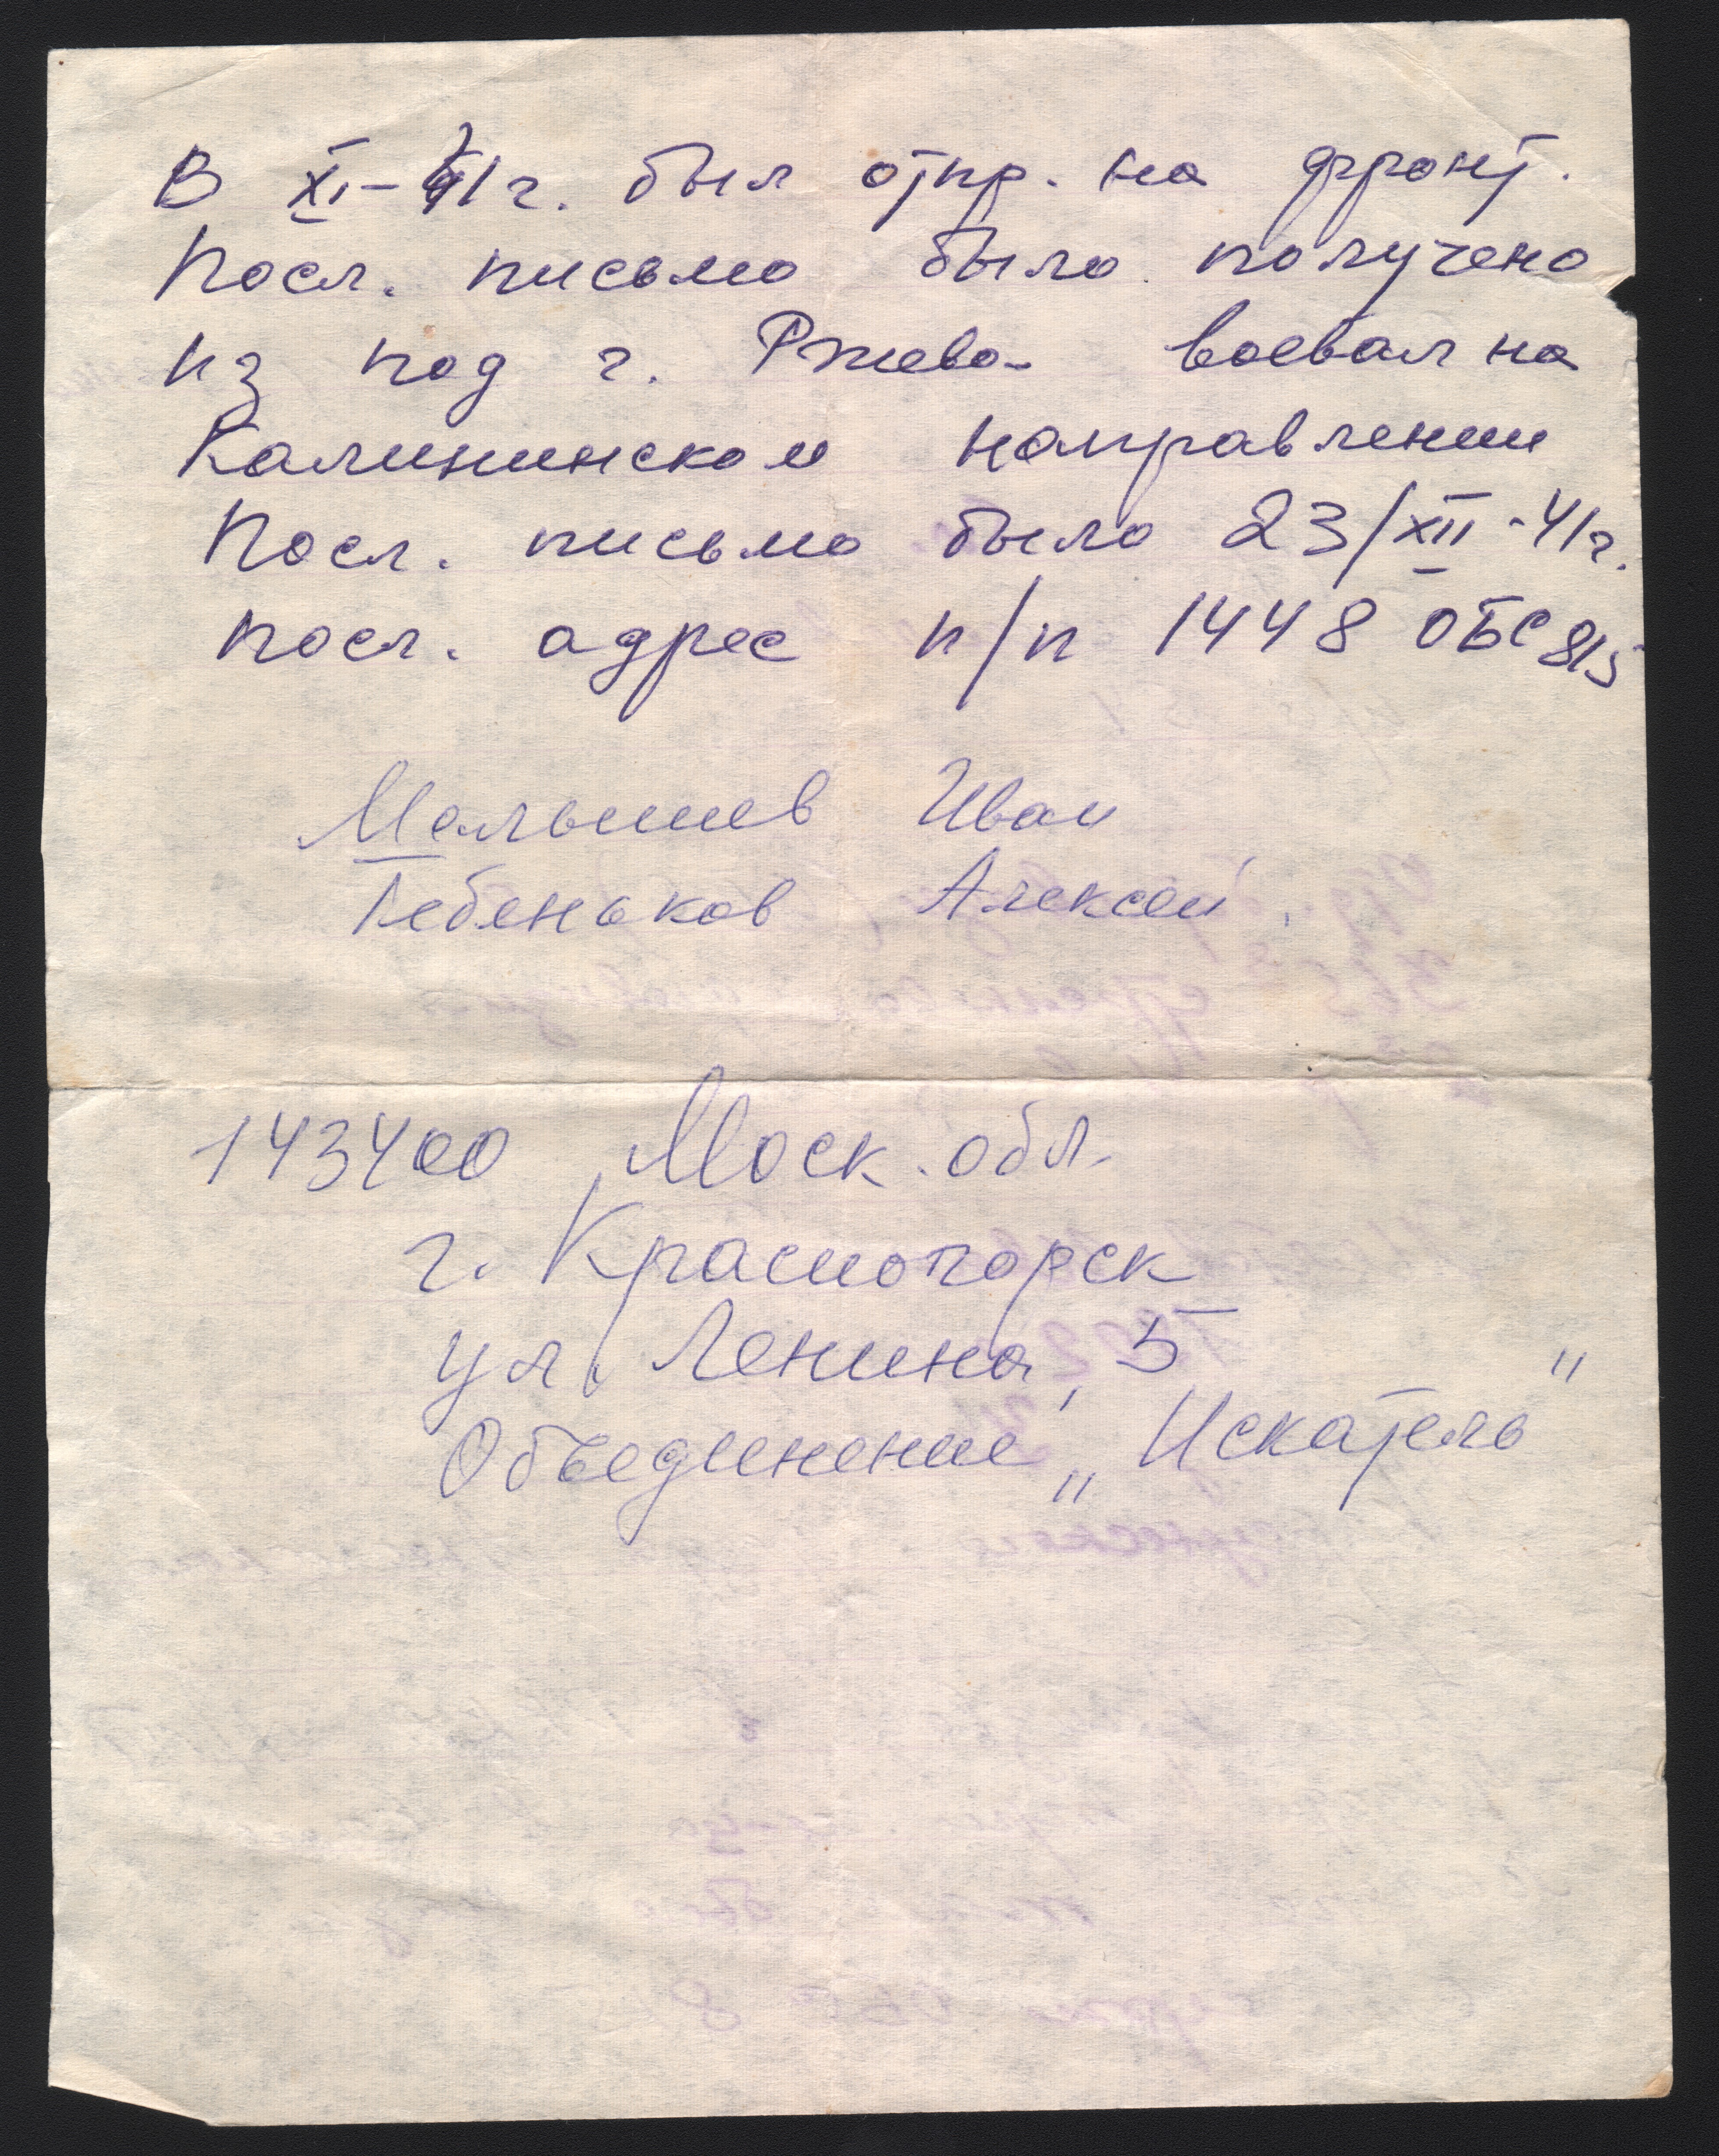 В XI-41г. был отпр. на фронт.
Посл. письмо было получено
из под г. Ржева- воевал на
Калининском направлении
Посл. письмо было 23/XII-41г.
посл. адрес п/п 1448 ОБС 815
Малышев Иван
Гебеньков Алексей.
143400 Моск. обл.
г. Красногорск
ул. Ленина, 5
Объединение „Искатель"